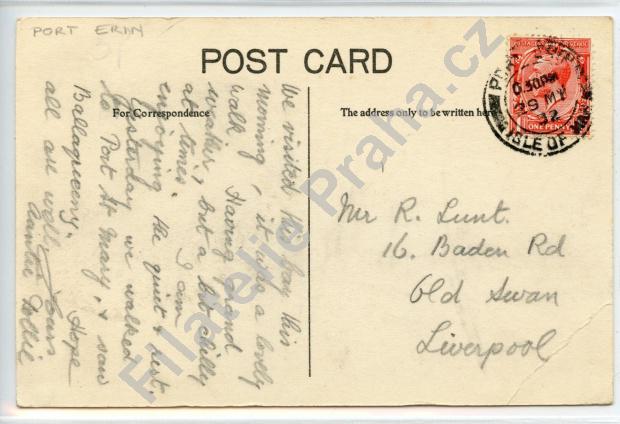 PORT ERIN
POST CARD
For Correspondence
The address only to be written here
PORT ERIN
6.30 PM
29 MY
32
ISLE OF MAN
ONE PENNY
We visited this bay this
morning, it was a lovely
walk. Having grand
weather, but a bit chilly
at times. I am
enjoying the quiet & rest.
Yesterday we walked
to Port St Mary, & saw
Ballaqueeny. Hope
all are well, Yours
Auntie Pollie
Mr R. Lunt.
16. Baden Rd
Old Swan
Liverpool
Filatelie Praha.cz